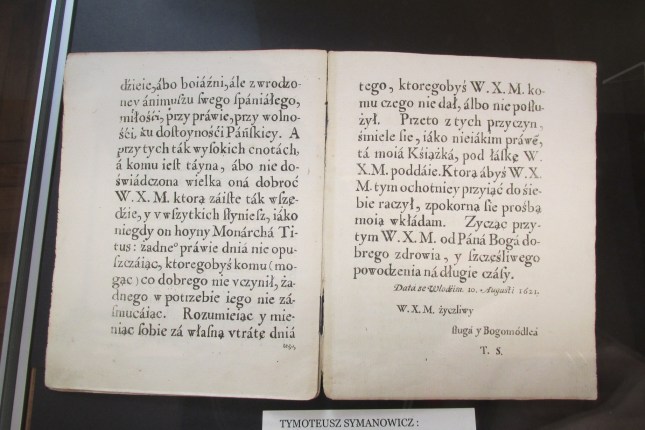 dźieie, ábo boiáźni, ále z wrodzo-
nev ánimuszu swego spániáłego,
miłośći, przy práwie, przy wolno-
śći, ku dostoynośći Páńskiey. A
przy tych ták wysokich cnotách,
á komu iest táyna, ábo nie do-
świádczona wielka oná dobroć
W. X. M. ktorą záiste ták wszę-
dźie, y v wszytkich słyniesz, iáko
niegdy on hoyny Monárchá Ti-
tus: żadneº práwie dniá nie opu-
szczáiąc, ktoregobyś komu (mo-
gąc) co dobrego nie vczynił, żá-
dnego w potrzebie iego nie zá-
smucáiąc. Rozumieiąc y mie-
niąc sobie zá własną vtrátę dniá
tego,
tego, ktoregobyś W. X. M. ko-
mu czego nie dał, álbo nie posłu-
żył. Przeto z tych przyczyn,
śmiele sie, iáko nieiákim práwẽ,
tá moiá Kśiąszká, pod łáskę W.
X. M. poddáie. Ktorą ábyś W. X.
M. tym ochotniey przyiąć do śie-
bie raczył, z pokorna sie prośbą
moią wkłádam. Zycząc przy-
tym W. X. M. od Páná Bogá do-
brego zdrowia, y szczęśliwego
powodzenia ná długie czásy.
Data ze Włodzim. 10. Augusti 1621.
W. X. M. życzliwy
sługá y Bogomodlcá
T. S.
TYMOTEUSZ SYMANOWICZ :